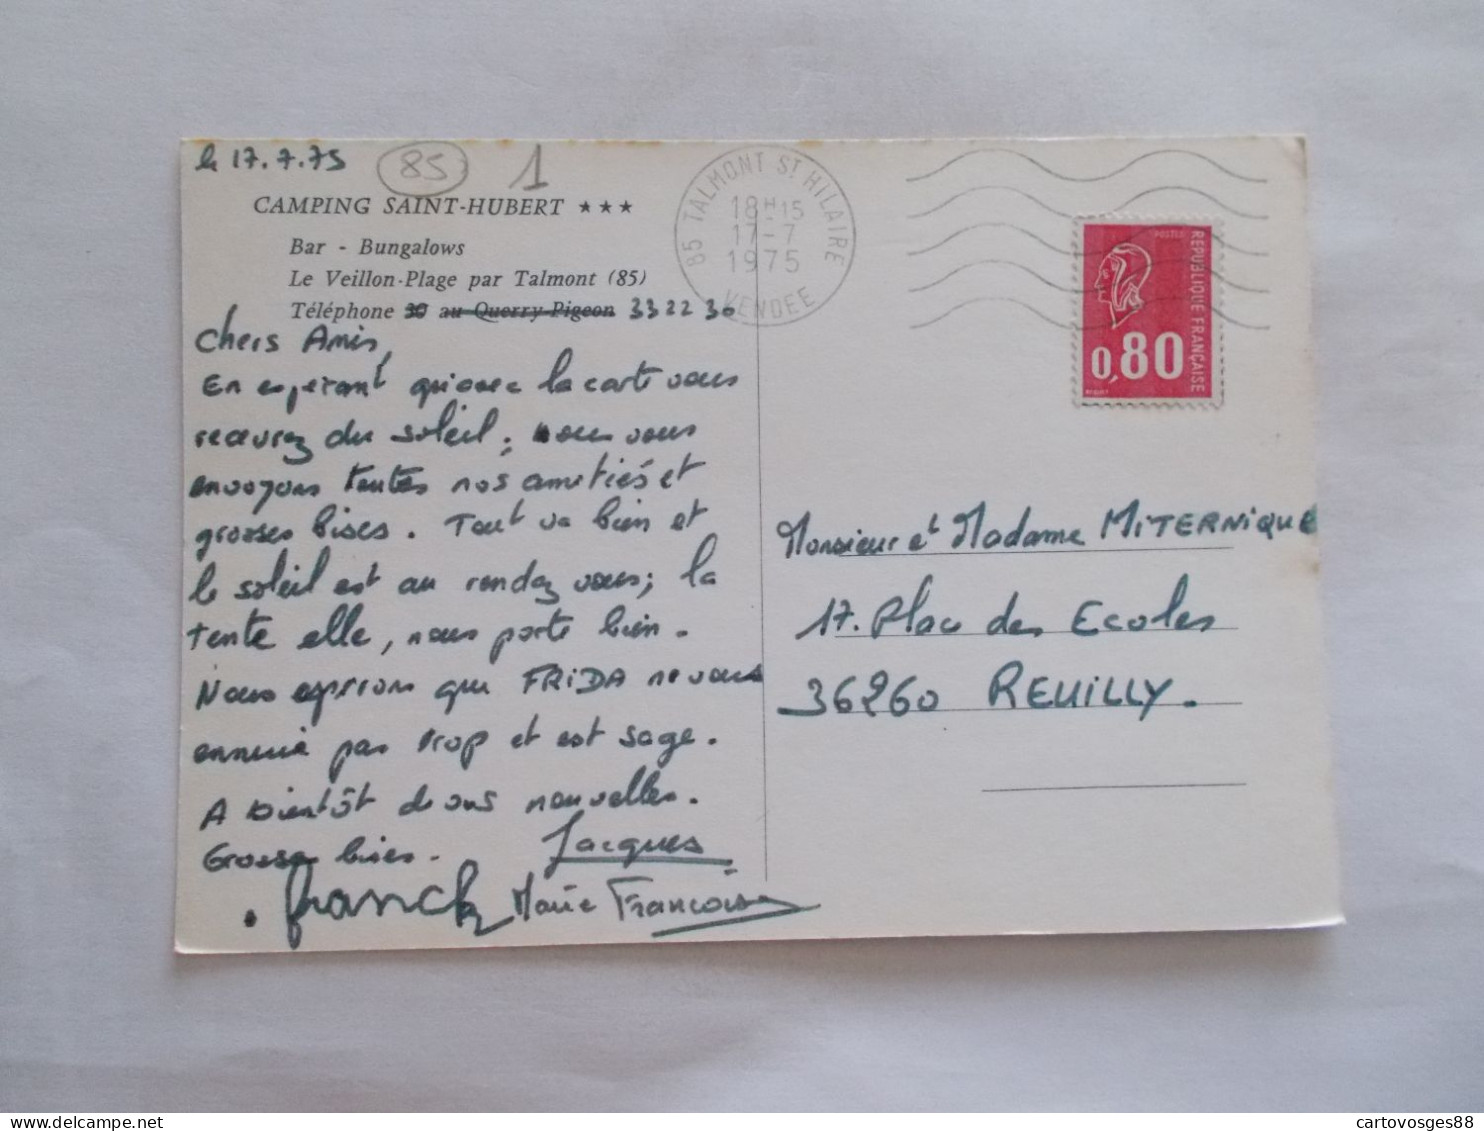 le 17.7.75
85
1
CAMPING SAINT-HUBERT ★★★
Bar - Bungalows
Le Veillon-Plage par Talmont (85)
Téléphone 30 au Querry-Pigeon 33 22 30
Chers Amis,
En espérant qu'avec la carte vous
recevrez du soleil, nous vous
envoyons toutes nos amitiés et
grosses bises. Tout va bien et
le soleil est au rendez vous; la
tente elle, nous porte bien.
Nous espérons que FRIDA ne vous
ennuie pas trop et est sage.
A bientôt de vos nouvelles.
Grosses bises.
Jacques
Franck Marie Françoise
85 TALMONT ST HILAIRE
18H15
17-7
1975
VENDEE
POSTES
REPUBLIQUE FRANÇAISE
0,80
Monsieur et Madame MITERNIQUE
17. Place des Ecoles
36260 REUILLY.
cartovosges88